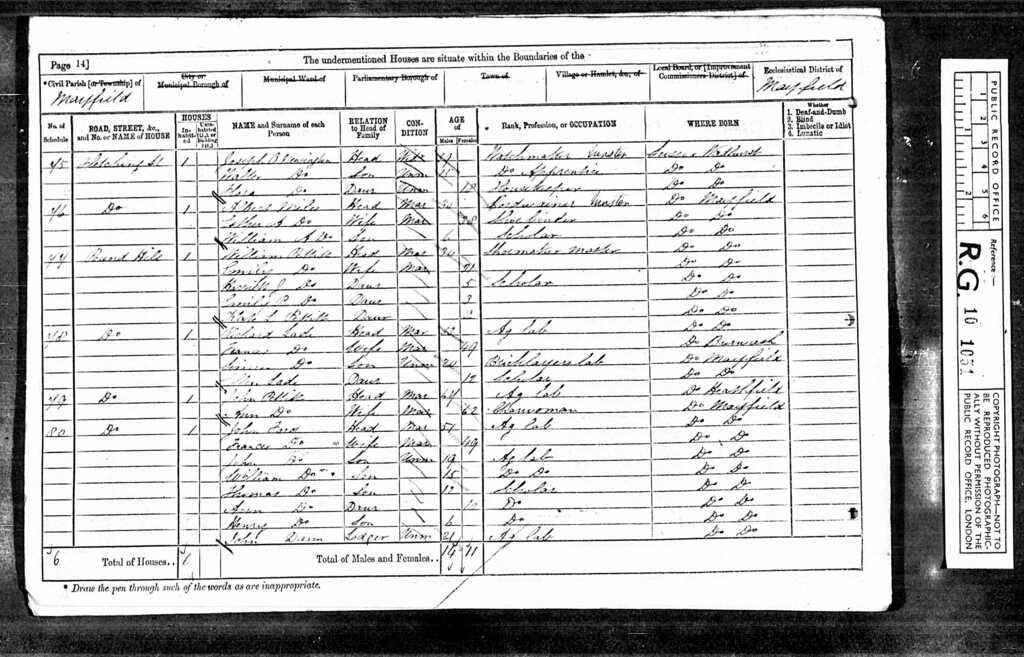 The undermentioned Houses are situate within the Boundaries of the
Page 14]
*Civil Parish [or Township] of
Mayfield
City or
Municipal Borough of
Municipal Ward of
Parliamentary Borough of
Town of
Village or Hamlet, &c., of
Local Board, or [Improvement
Commissioners District] of
Ecclesiastical District of
Mayfield
No. of
Schedule
ROAD, STREET, &c.,
and No. or NAME of HOUSE
HOUSES
In-
habit-
ed
NAME and Surname of each
Person
RELATION
to Head of
Family
CON-
DITION
AGE
of
Males
Females
Rank, Profession, or OCCUPATION
WHERE BORN
Whether
1. Deaf-and-Dumb
2. Blind
3. Imbecile or Idiot
4. Lunatic
75 Fletching St 1 Joseph Head Watchmaker Master Sussex
Walter Do Son Unm 15 Do Apprentice Do Do
Flora Do Daur Unm 18 Housekeeper Do Do
76 Do 1 Albert Miles Head Mar Cordwainer Master Do Mayfield
Esther A Do Wife Mar 28 Shoe binder Do Do
William A Do Son 6 Scholar Do Do
77 1 William Head Mar Shoemaker Master Do Do
Emily Do Wife Mar Do Do
Do Daur 5 Scholar Do Do
Emily Do Daur 3 Do Do
Daur Do Do
78 Do 1 Richard Lade Head Mar Ag lab Do Do
Frances Do Wife Mar 49 Do Burwash
Do Son Unm Bricklayers lab Do Mayfield
Lade Daur 12 Scholar Do Do
79 Do 1 John Head Mar 64 Ag lab Do Heathfield
Ann Do Wife Mar 62 Charwoman Do Mayfield
80 Do 1 John Ford Head Mar 51 Ag lab Do Do
Frances Do Wife Mar 49 Do Do
John Do Son Unm 19 Ag lab Do Do
William Do Son 15 Do Do Do Do
Thomas Do Son 12 Scholar Do Do
Ann Do Daur 10 Do Do Do
Henry Do Son 6 Do Do Do
John Lodger Unm 21 Ag lab Do Do
6 Total of Houses.. Total of Males and Females.. 14 11
* Draw the pen through such of the words as are inappropriate.
PUBLIC RECORD OFFICE
1
2
3
4
5
6
1
2
Reference :-
R.G. 10 1051
COPYRIGHT PHOTOGRAPH—NOT TO
BE REPRODUCED PHOTOGRAPHIC-
ALLY WITHOUT PERMISSION OF THE
PUBLIC RECORD OFFICE, LONDON